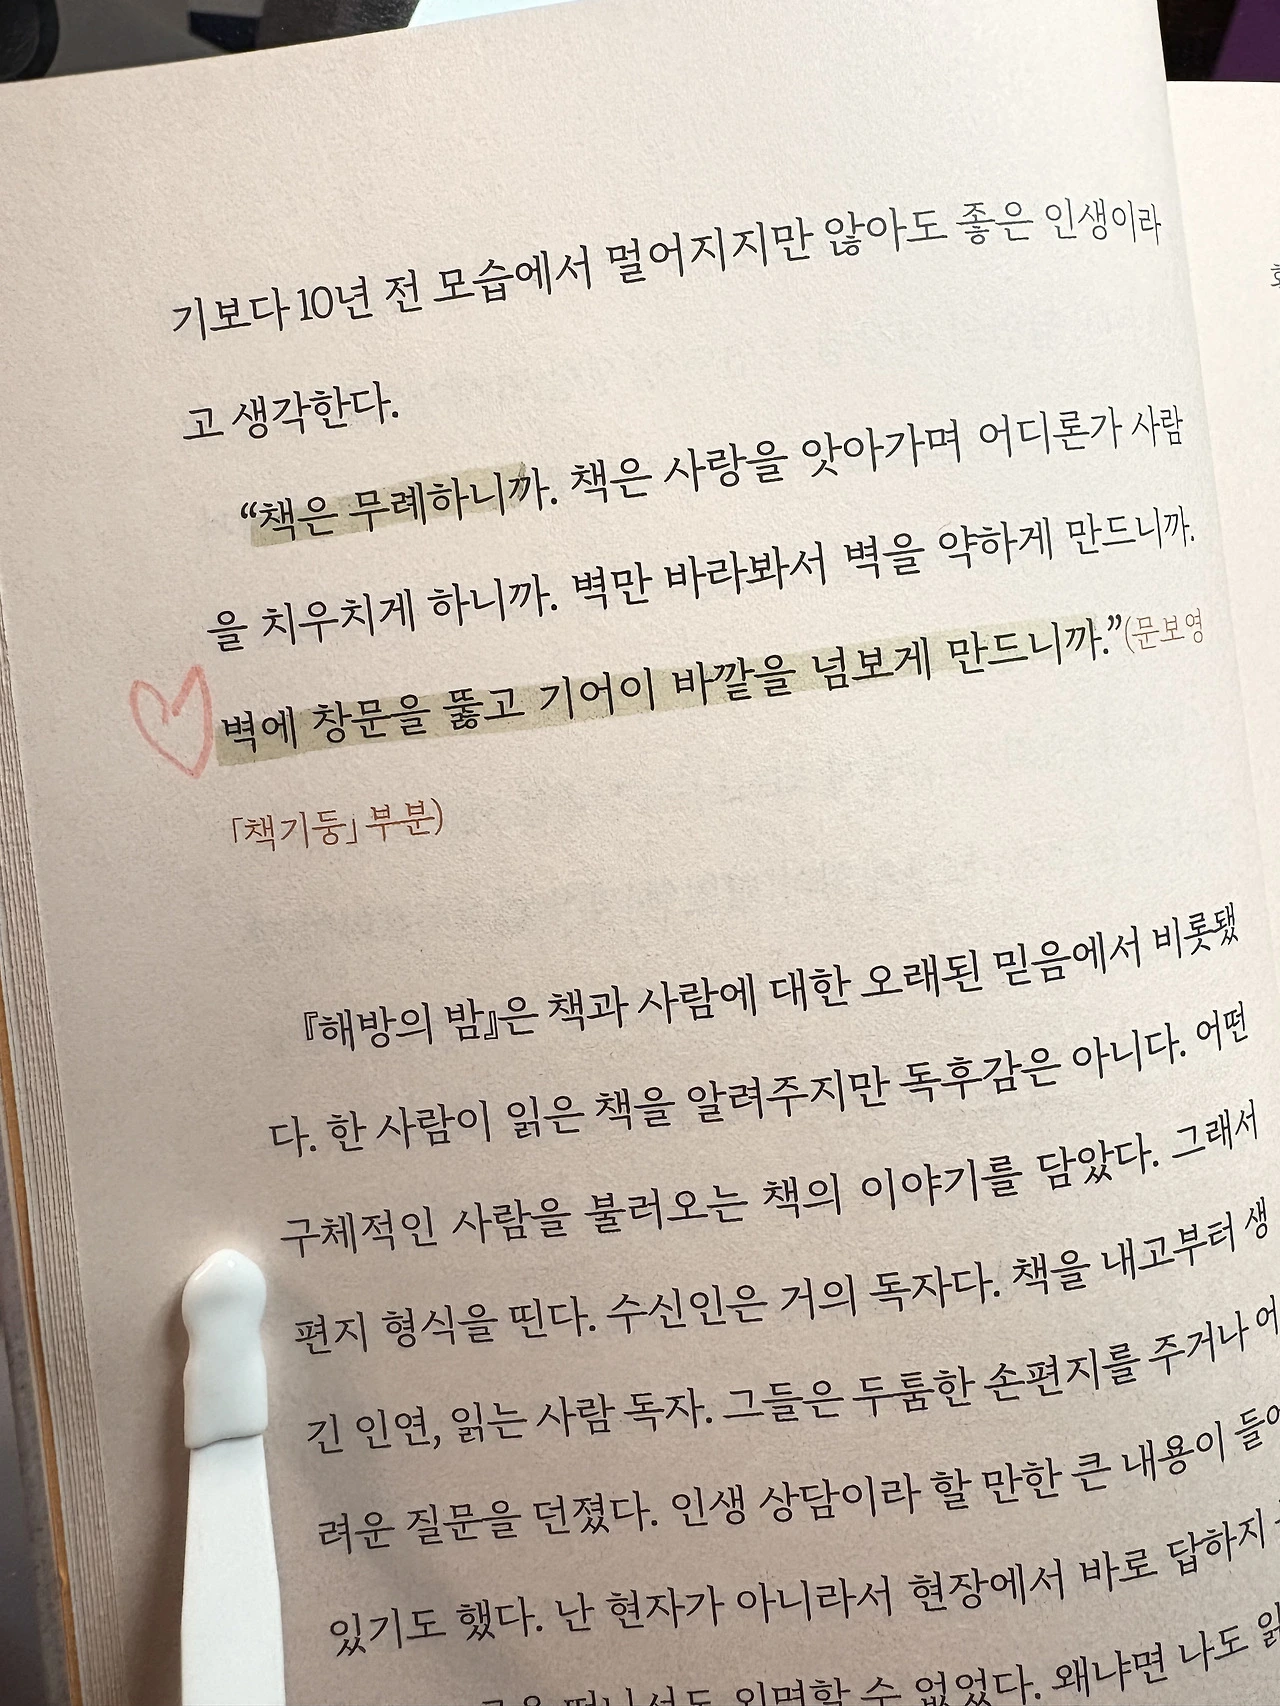 기보다 10년 전 모습에서 멀어지지만 않아도 좋은 인생이라
고 생각한다.
“책은 무례하니까. 책은 사랑을 앗아가며 어디론가 사람
을 치우치게 하니까. 벽만 바라봐서 벽을 약하게 만드니까.
벽에 창문을 뚫고 기어이 바깥을 넘보게 만드니까.”(문보영
「책기둥」 부분)
『해방의 밤』은 책과 사람에 대한 오래된 믿음에서 비롯됐
다. 한 사람이 읽은 책을 알려주지만 독후감은 아니다. 어떤
구체적인 사람을 불러오는 책의 이야기를 담았다. 그래서
편지 형식을 띤다. 수신인은 거의 독자다. 책을 내고부터 생
긴 인연, 읽는 사람 독자. 그들은 두툼한 손편지를 주거나 어
려운 질문을 던졌다. 인생 상담이라 할 만한 큰 내용이
있기도 했다. 난 현자가 아니라서 현장에서 바로 답하지
떠나서도 외면할 수 없었다. 왜냐면 나도